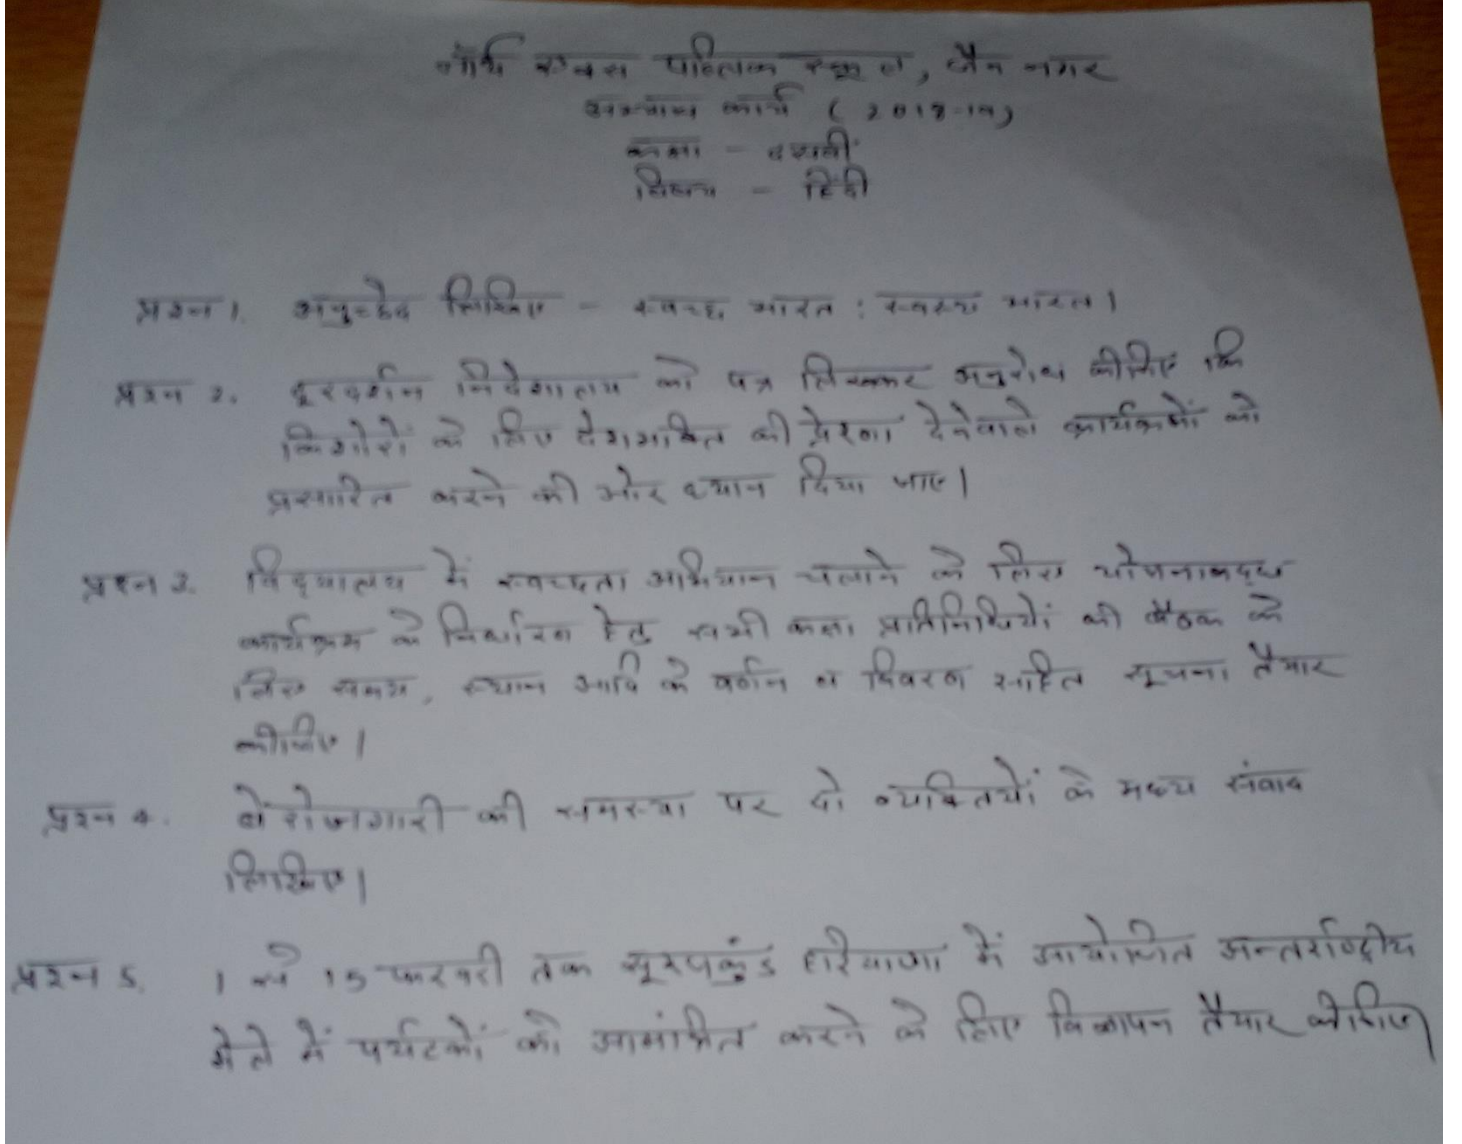 नॉर्थ एक्स पब्लिक स्कूल, जैन नगर
अभ्यास कार्य (2018-19)
कक्षा - दसवीं
विषय - हिंदी
प्रश्न 1. अनुच्छेद लिखिए - स्वच्छ भारत : स्वस्थ भारत।
प्रश्न 2. दूरदर्शन निदेशालय को पत्र लिखकर अनुरोध कीजिए कि
किशोरों के लिए देशभक्ति की प्रेरणा देनेवाले कार्यक्रमों को
प्रसारित करने की ओर ध्यान दिया जाए।
प्रश्न 3. विद्यालय में स्वच्छता अभियान चलाने के लिए योजनाबद्ध
कार्यक्रम के निर्धारण हेतु सभी कक्षा प्रतिनिधियों की बैठक के
लिए समय, स्थान आदि के वर्णन व विवरण सहित सूचना तैयार
कीजिए।
प्रश्न 4. बेरोजगारी की समस्या पर दो व्यक्तियों के मध्य संवाद
लिखिए।
प्रश्न 5. 1 से 15 फरवरी तक सूरजकुंड हरियाणा में आयोजित अन्तर्राष्ट्रीय
मेले में पर्यटकों को आमंत्रित करने के लिए विज्ञापन तैयार कीजिए।